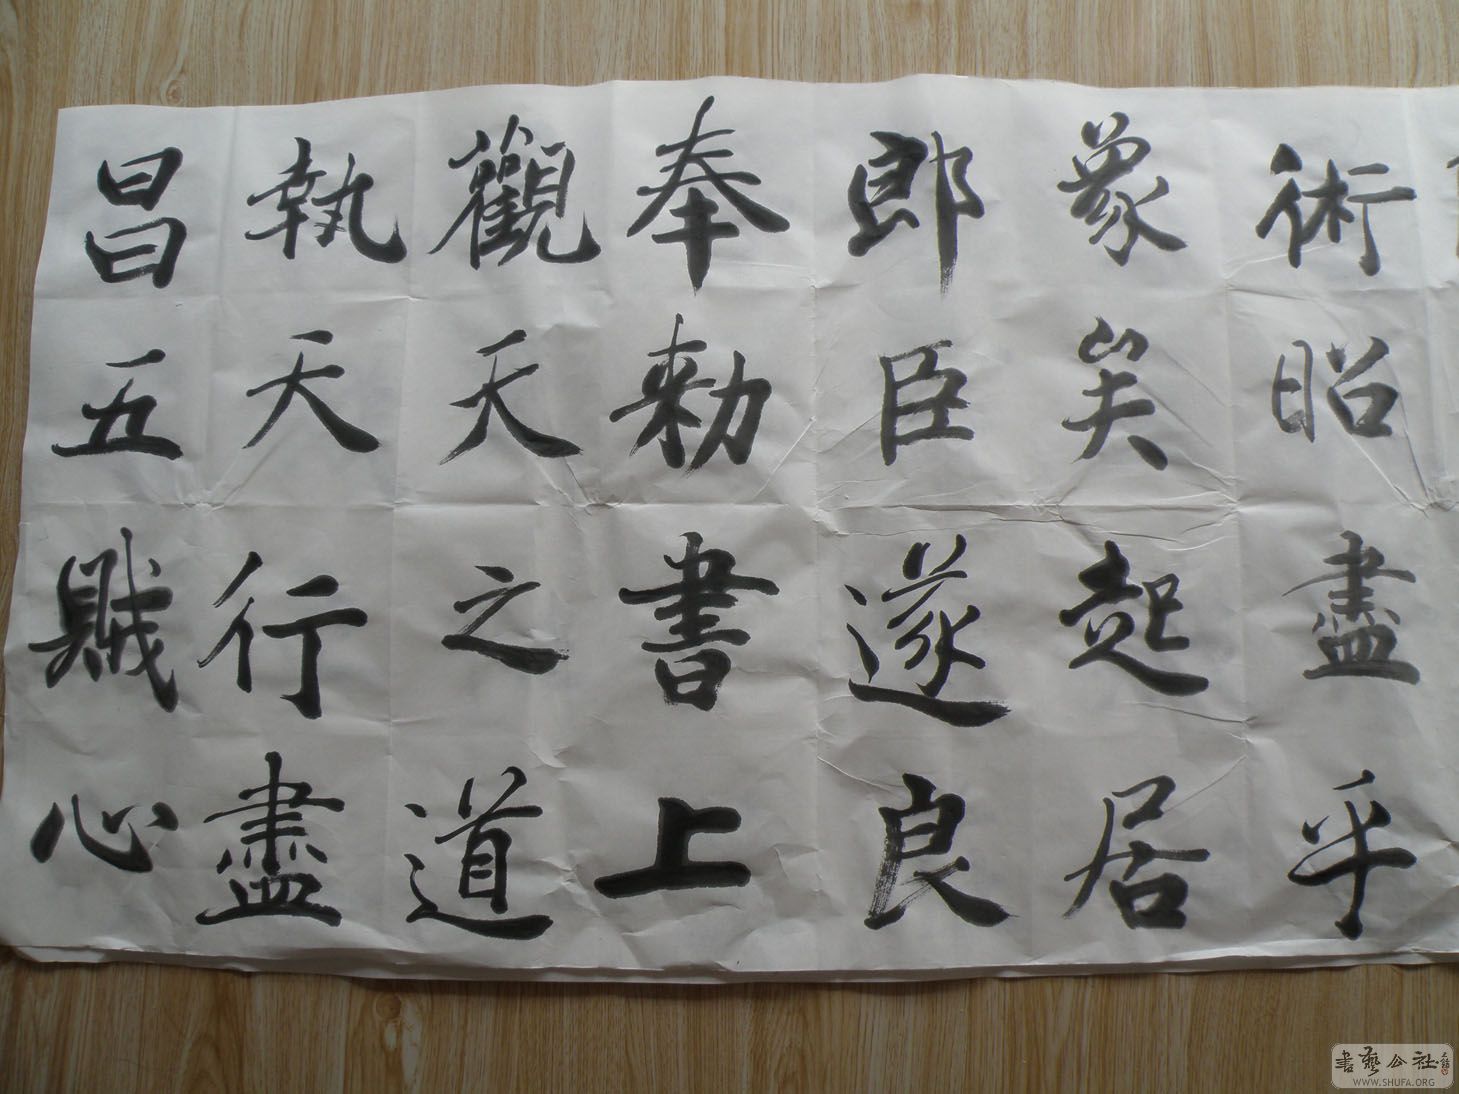 術昭盡乎
象矣起居
郎臣遂良
奉勑書上
觀天之道
執天行盡
昌五賊心
書藝公社
WWW.SHUFA.ORG